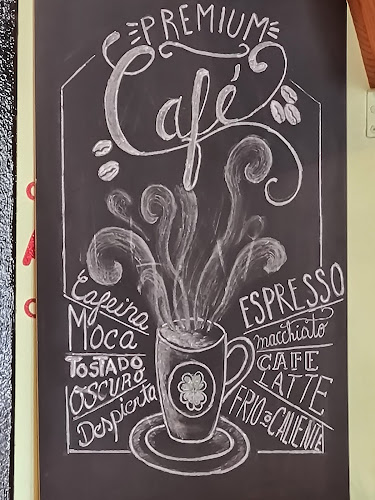 PREMIUM
Café
Cafeína
Moca
TOSTADO
OSCURO
Despierta
ESPRESSO
macchiato
CAFE
LATTE
FRIO o CALIENTE